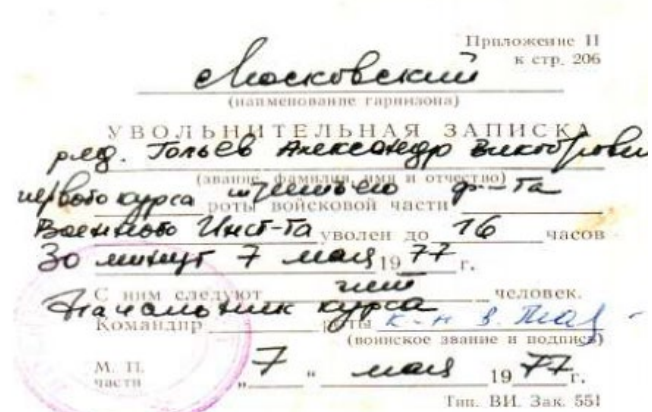 Приложение 11
к стр. 206
Московский
(наименование гарнизона)
УВОЛЬНИТЕЛЬНАЯ ЗАПИСКА
ряд. Гольев Александр Викторович
(звание, фамилия, имя и отчество)
первого курса третьего ф-та
роты войсковой части
Военного Инст-та уволен до 16 часов
30 минут 7 мая 1977 г.
С ним следуют человек.
Начальник курса
Командир роты к-н в.
(воинское звание и подпись)
М. П. части „7“ мая 1977 г.
Тип. ВИ. Зак. 551